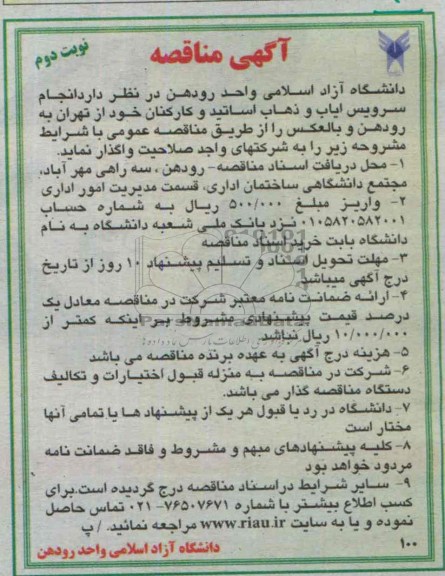 نوبت دوم
آگهی مناقصه
دانشگاه آزاد اسلامی واحد رودهن در نظر دارد انجام
سرویس ایاب و ذهاب اساتید و کارکنان خود از تهران به
رودهن و بالعکس را از طریق مناقصه عمومی با شرایط
مشروحه زیر را به شرکتهای واجد صلاحیت واگذار نماید.
۱- محل دریافت اسناد مناقصه- رودهن ، سه راهی مهر آباد،
مجتمع دانشگاهی ساختمان اداری، قسمت مدیریت امور اداری
۲- واریز مبلغ ۵۰۰/۰۰۰ ریال به شماره حساب
۰۱۰۵۸۲۰۵۸۲۰۰۱ نزد بانک ملی شعبه دانشگاه به نام
دانشگاه بابت خرید اسناد مناقصه
۳- مهلت تحویل اسناد و تسلیم پیشنهاد ۱۰ روز از تاریخ
درج آگهی میباشد
۴- ارائه ضمانت نامه معتبر شرکت در مناقصه معادل یک
درصد قیمت پیشنهادی مشروط بر اینکه کمتر از
۱۰/۰۰۰/۰۰۰ ریال نباشد.
۵- هزینه درج آگهی به عهده برنده مناقصه می باشد
۶- شرکت در مناقصه به منزله قبول اختیارات و تکالیف
دستگاه مناقصه گذار می باشد.
۷- دانشگاه در رد یا قبول هر یک از پیشنهاد ها یا تمامی آنها
مختار است
۸- کلیه پیشنهادهای مبهم و مشروط و فاقد ضمانت نامه
مردود خواهد بود
۹- سایر شرایط در اسناد مناقصه درج گردیده است.برای
کسب اطلاع بیشتر با شماره ۷۶۵۰۷۶۷۱-۰۲۱ تماس حاصل
نموده و یا به سایت www.riau.ir مراجعه نمائید. / پ
۱۰۰
دانشگاه آزاد اسلامی واحد رودهن